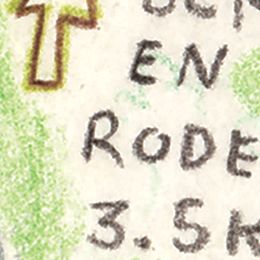 EN
RODE
3.5K